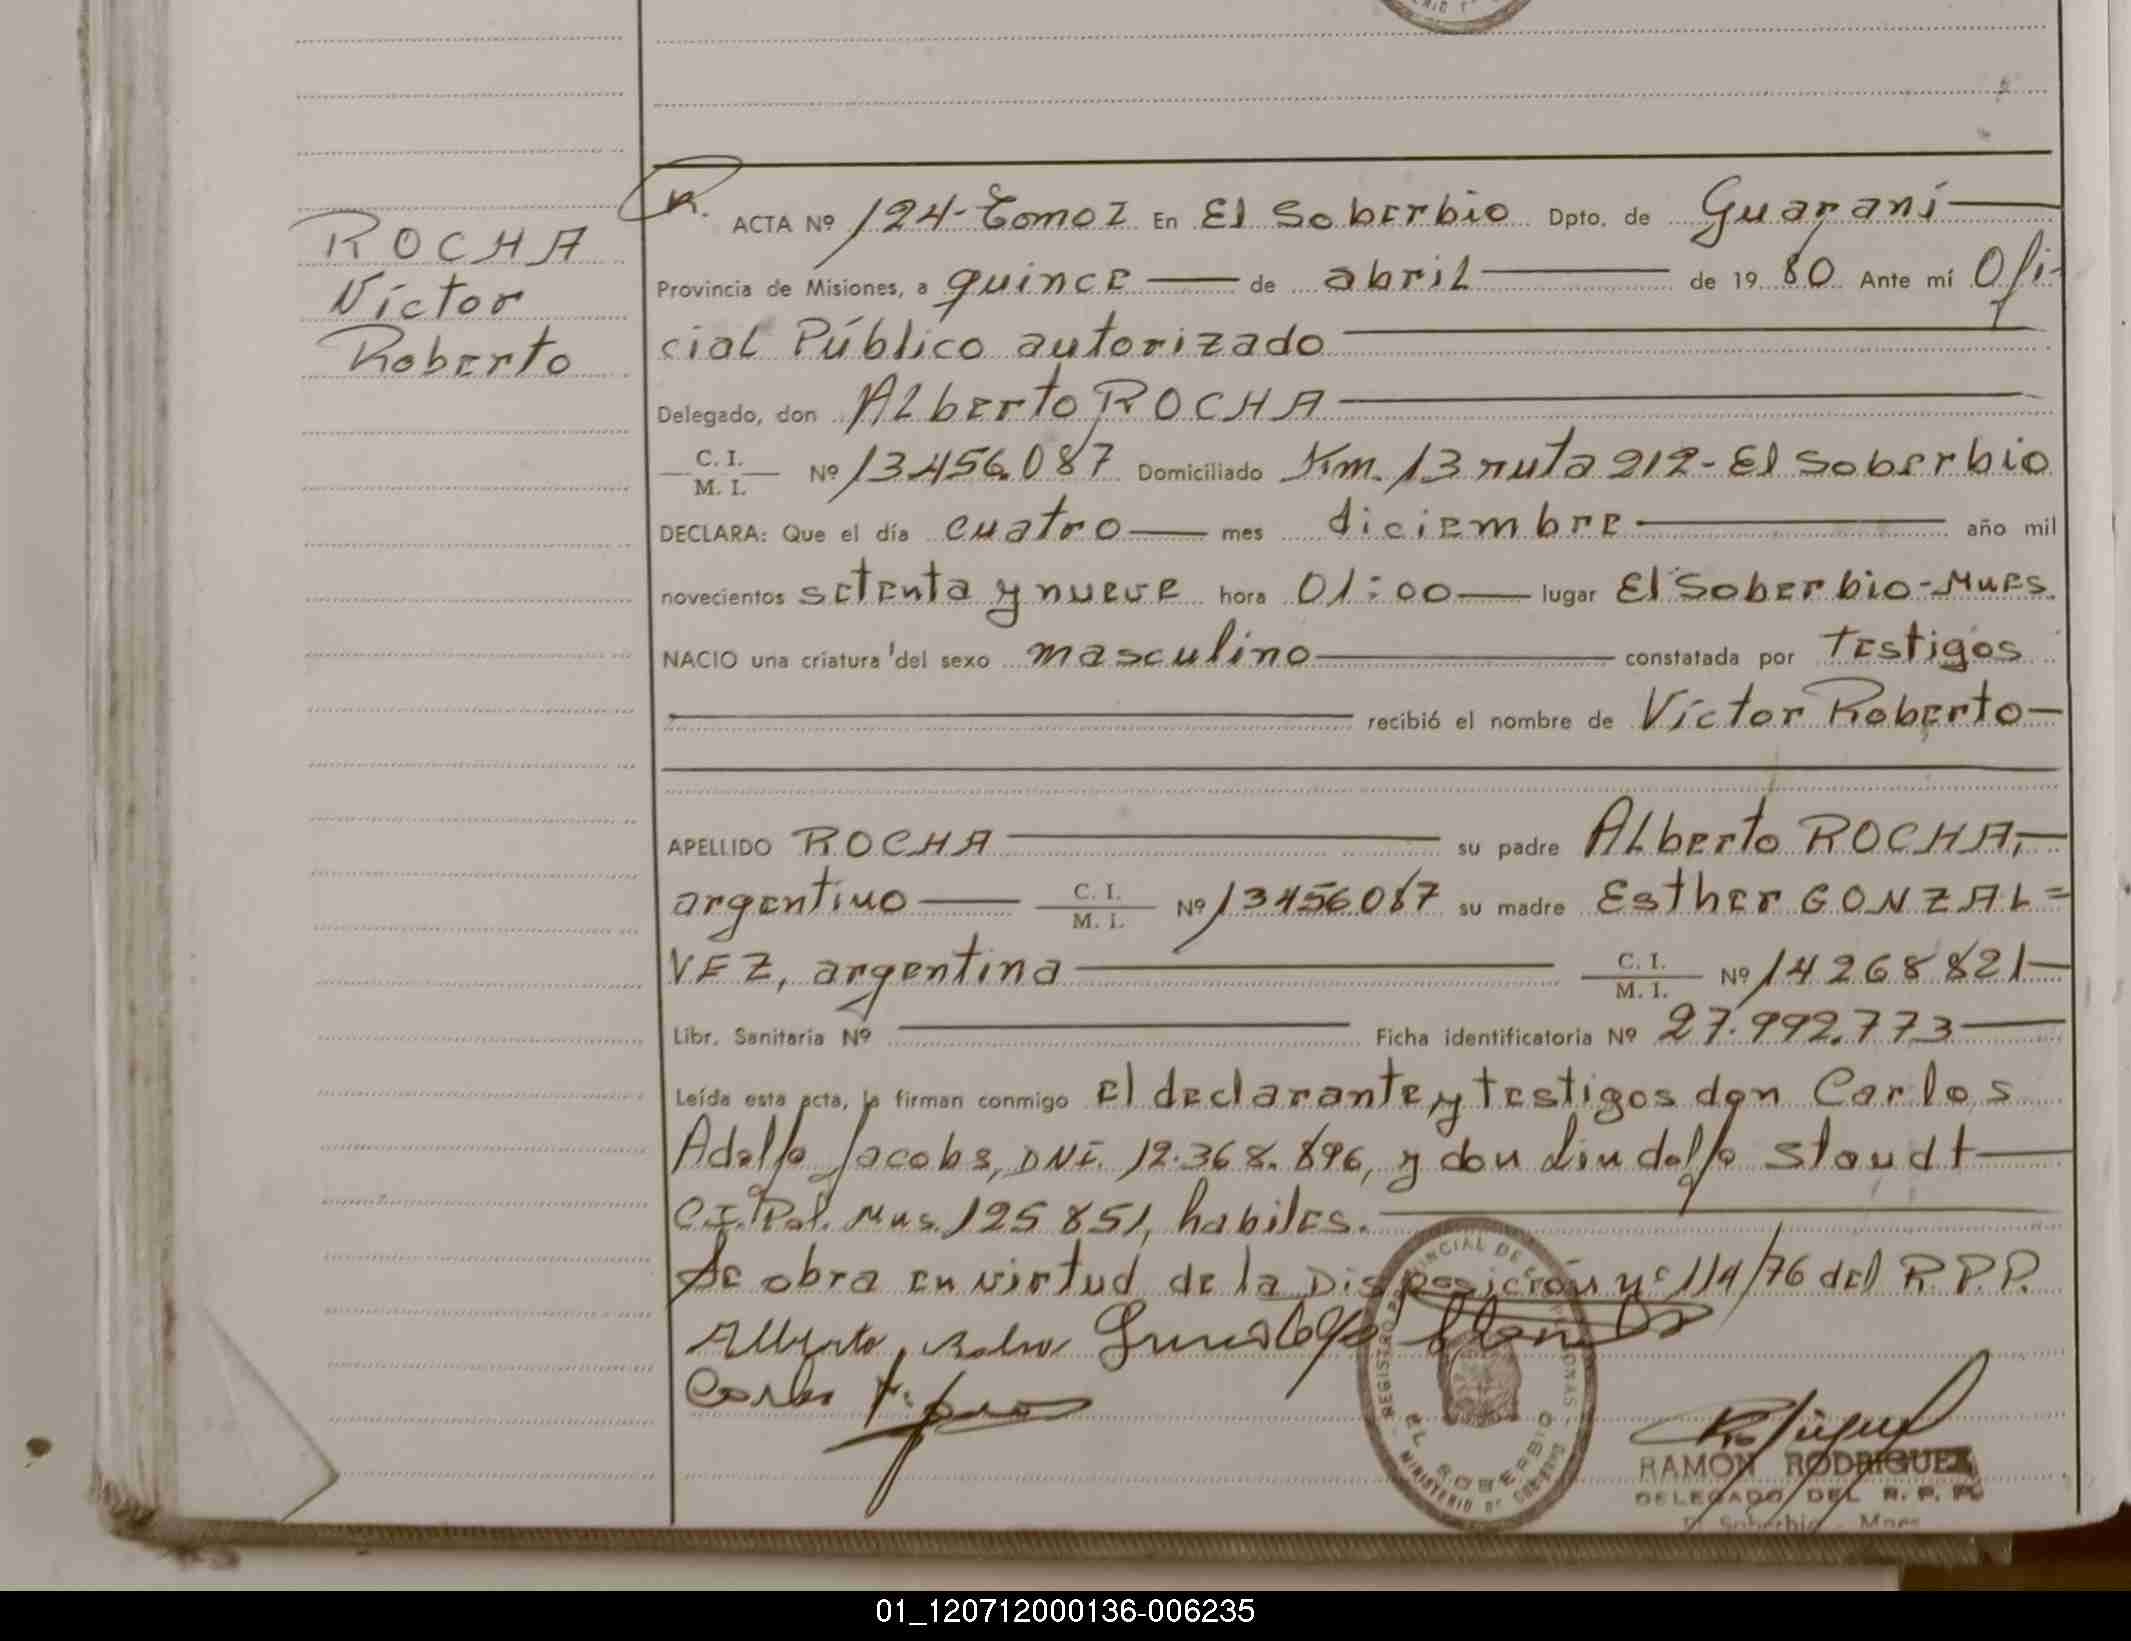 ROCHA
Víctor
Roberto
ACTA Nº 124-Tomo I En El Soberbio Dpto. de Guaraní
Provincia de Misiones, a quince de abril de 1980 Ante mí Ofi-
cial Público autorizado
Delegado, don Alberto ROCHA
C. I.
M. I. Nº 13456.087 Domiciliado Km. 13 ruta 212-El Soberbio
DECLARA: Que el día cuatro mes diciembre año mil
novecientos setenta y nueve hora 01:00 lugar El Soberbio-Mnes.
NACIO una criatura del sexo masculino constatada por testigos
recibió el nombre de Víctor Roberto
APELLIDO ROCHA su padre Alberto ROCHA,
argentino C. I.
M. I. Nº 13456087 su madre Esther GONZAL=
VEZ, argentina C. I.
M. I. Nº 14268821
Libr. Sanitaria Nº Ficha identificatoria Nº 27.992.773
Leída esta acta, la firman conmigo el declarante y testigos don Carlos
Adolfo Jacobs, DNI. 12.368.896, y don Lindolfo Staudt
C.I. Pol. Mns. 125851, habiles.
Se obra en virtud de la Disposición nº 114/76 del R.P.P.
Alberto
Carlos
REGISTRO PROVINCIAL DE
EL SOBERBIO
MINISTERIO DE GOBIERNO
RAMON RODRIGUEZ
DELEGADO DEL R. P. P.
El Soberbio - Mnes
01_120712000136-006235